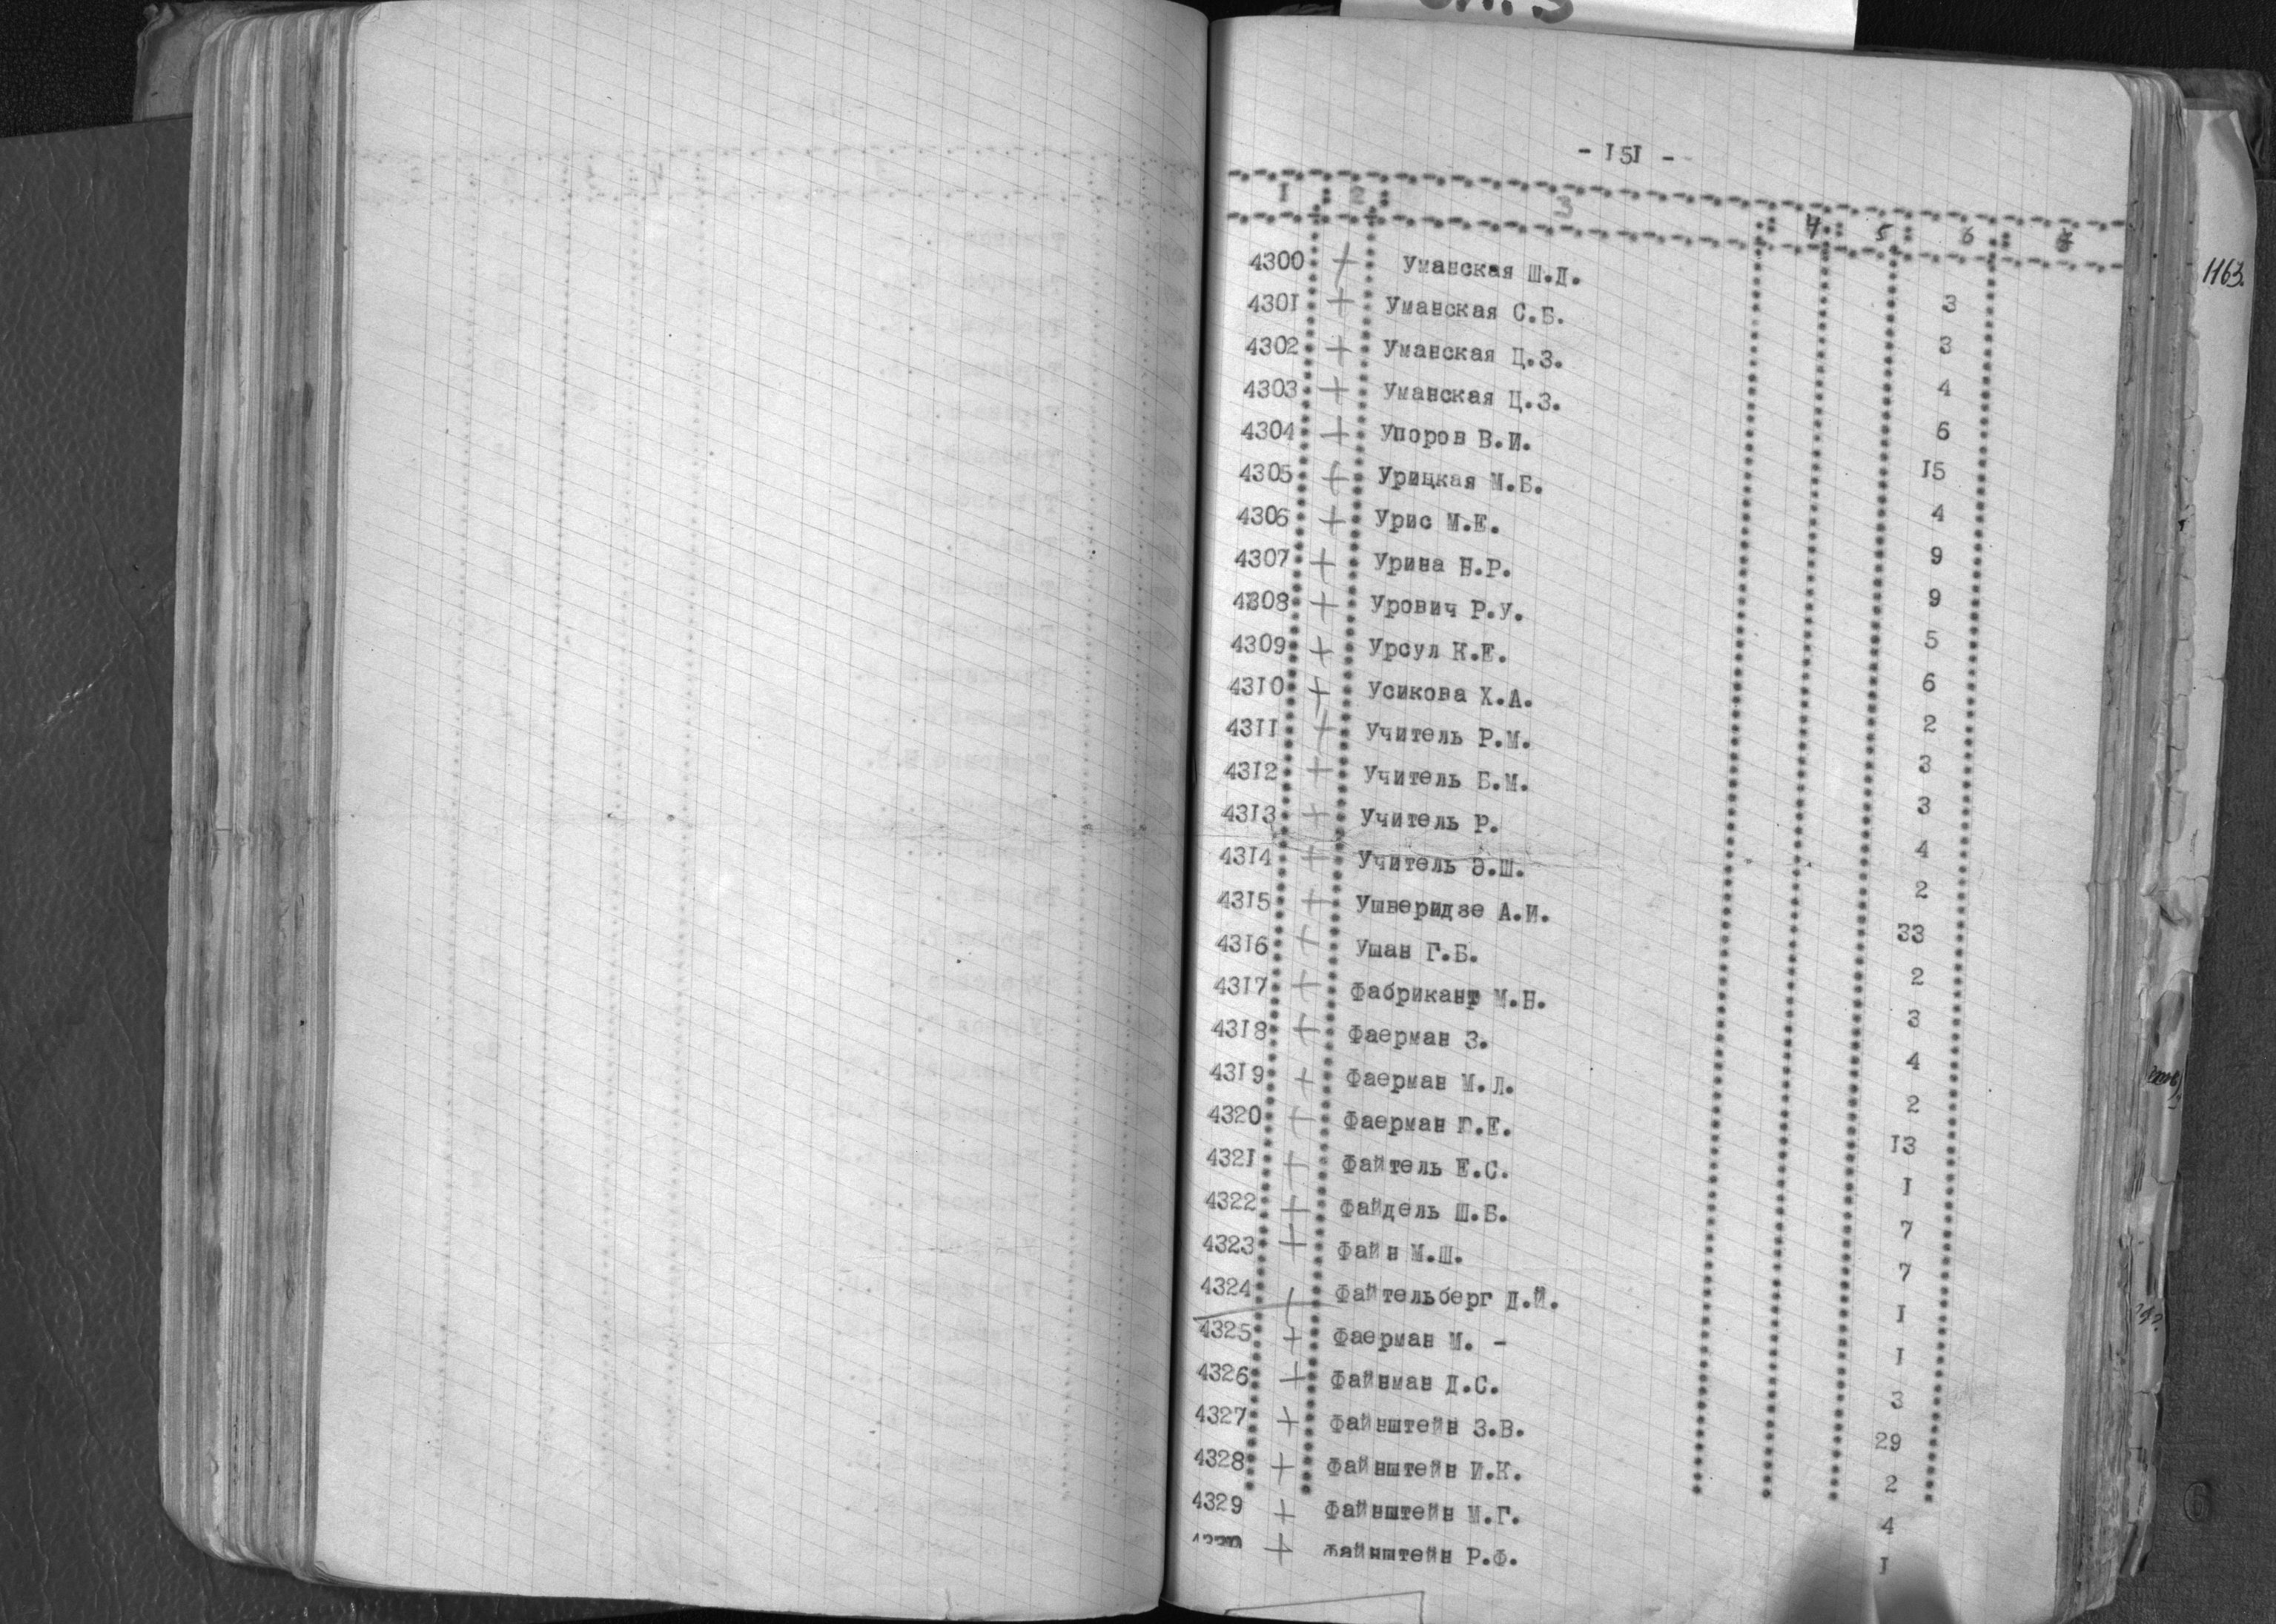 - I5I -
I 2 3 4 5 6 7
4300 + Уманская Ш.Д. 3
430I + Уманская С.Б. 3
4302 + Уманская Ц.З. 4
4303 + Уманская Ц.З. 6
4304 + Упоров В.И. I5
4305 + Урицкая М.Б. 4
4306 + Урис М.Е. 9
4307 + Урина Н.Р. 9
4308 + Урович Р.У. 5
4309 + Урсул К.Е. 6
43I0 + Усикова Х.А. 2
43II + Учитель Р.М. 3
43I2 + Учитель Б.М. 3
43I3 + Учитель Р. 4
43I4 + Учитель Э.Ш. 2
43I5 + Ушверидзе А.И. 33
43I6 + Ушан Г.Б. 2
43I7 + Фабрикант М.Н. 3
43I8 + Фаерман З. 4
43I9 + Фаерман М.Л. 2
4320 + Фаерман Г.Е. I3
432I + Файтель Е.С. I
4322 + Файдель Ш.Б. 7
4323 + Файн М.Ш. 7
4324 Файтельберг Д.Й. I
4325 + Фаерман М. - I
4326 + Файнман Д.С. 3
4327 + Файнштейн З.В. 29
4328 + Файнштейн И.К. 2
4329 + Файнштейн М.Г. 4
4330 + Файнштейн Р.Ф. I
1163.
6